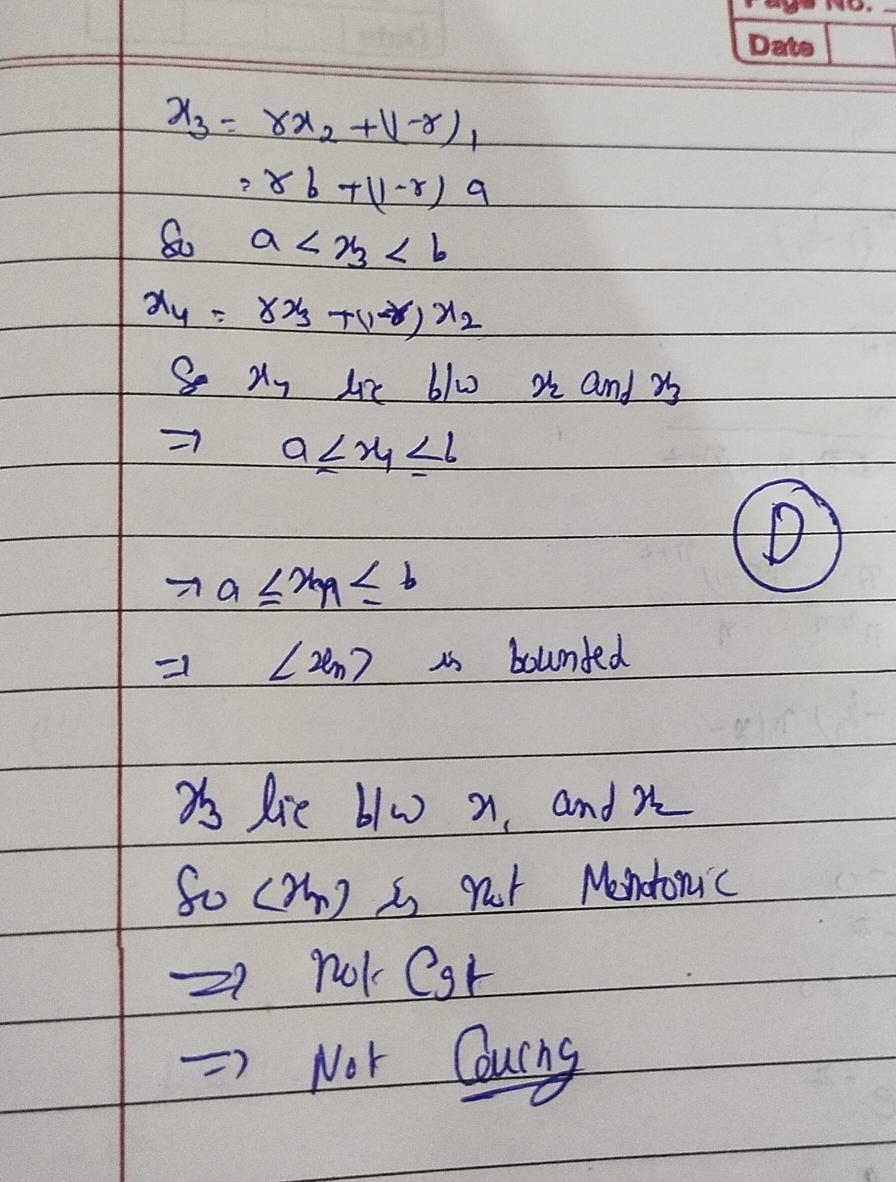 Page No.
Date
x₃ = γx₂ + (1-γ)₁
= γb + (1-γ) a
So a < x₃ < b
x₄ = γx₃ + (1-γ) x₂
So x₄ lie b/w x₂ and x₃
⇒ a ≤ x₄ ≤ b
D
⇒ a ≤ xₙ ≤ b
⇒ <xₙ> is bounded
x₃ lie b/w x₁ and x₂
So <xₙ> is not Monotonic
⇒ not Cgt
⇒ Not Cauchy